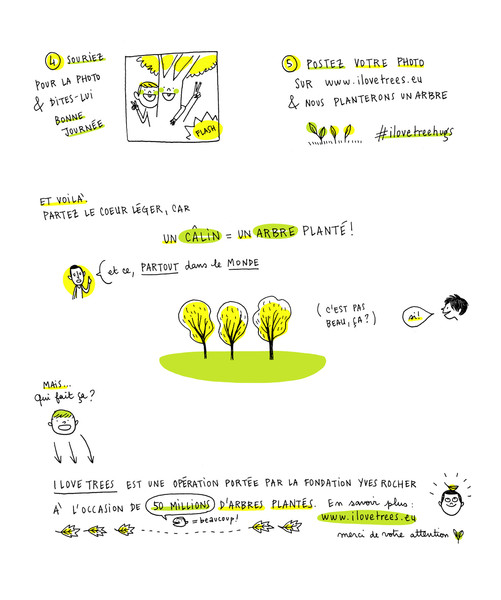 4 SOURIEZ
POUR LA PHOTO
& DITES-LUI
BONNE
JOURNÉE
FLASH
5 POSTEZ VOTRE PHOTO
SUR www.ilovetrees.eu
& NOUS PLANTERONS UN ARBRE
#ilovetreehugs
ET VOILÀ.
PARTEZ LE COEUR LÉGER, CAR
UN CÂLIN = UN ARBRE PLANTÉ!
et ce, PARTOUT dans le MONDE
(C'EST PAS
BEAU, ÇA?)
si!
MAIS...
qui fait ça?
I LOVE TREES EST UNE OPÉRATION PORTÉE PAR LA FONDATION YVES ROCHER
À L'OCCASION DE 50 MILLIONS D'ARBRES PLANTÉS. En savoir plus:
= beaucoup!
www.ilovetrees.eu
merci de votre attention